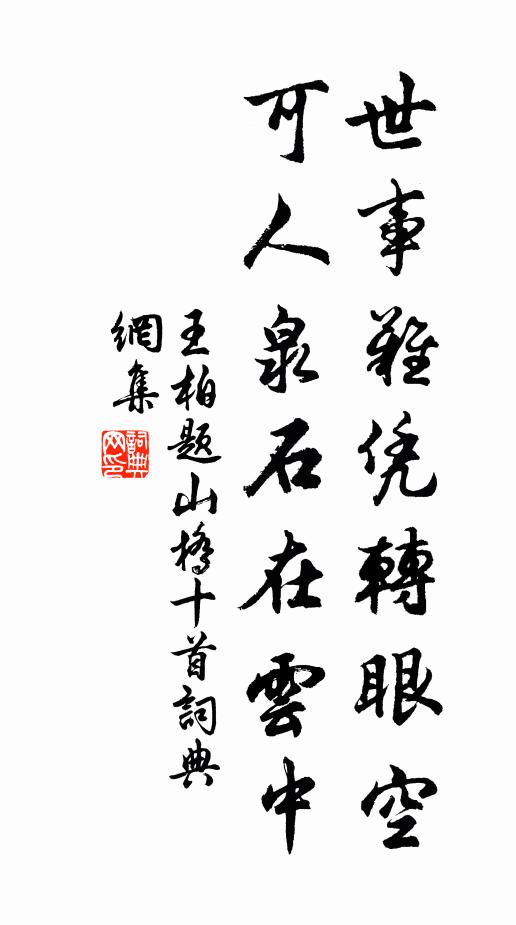 世事難凭轉眼空
可人泉石在雲中
王柏題山橋十首詞典
網集
詞典
網印